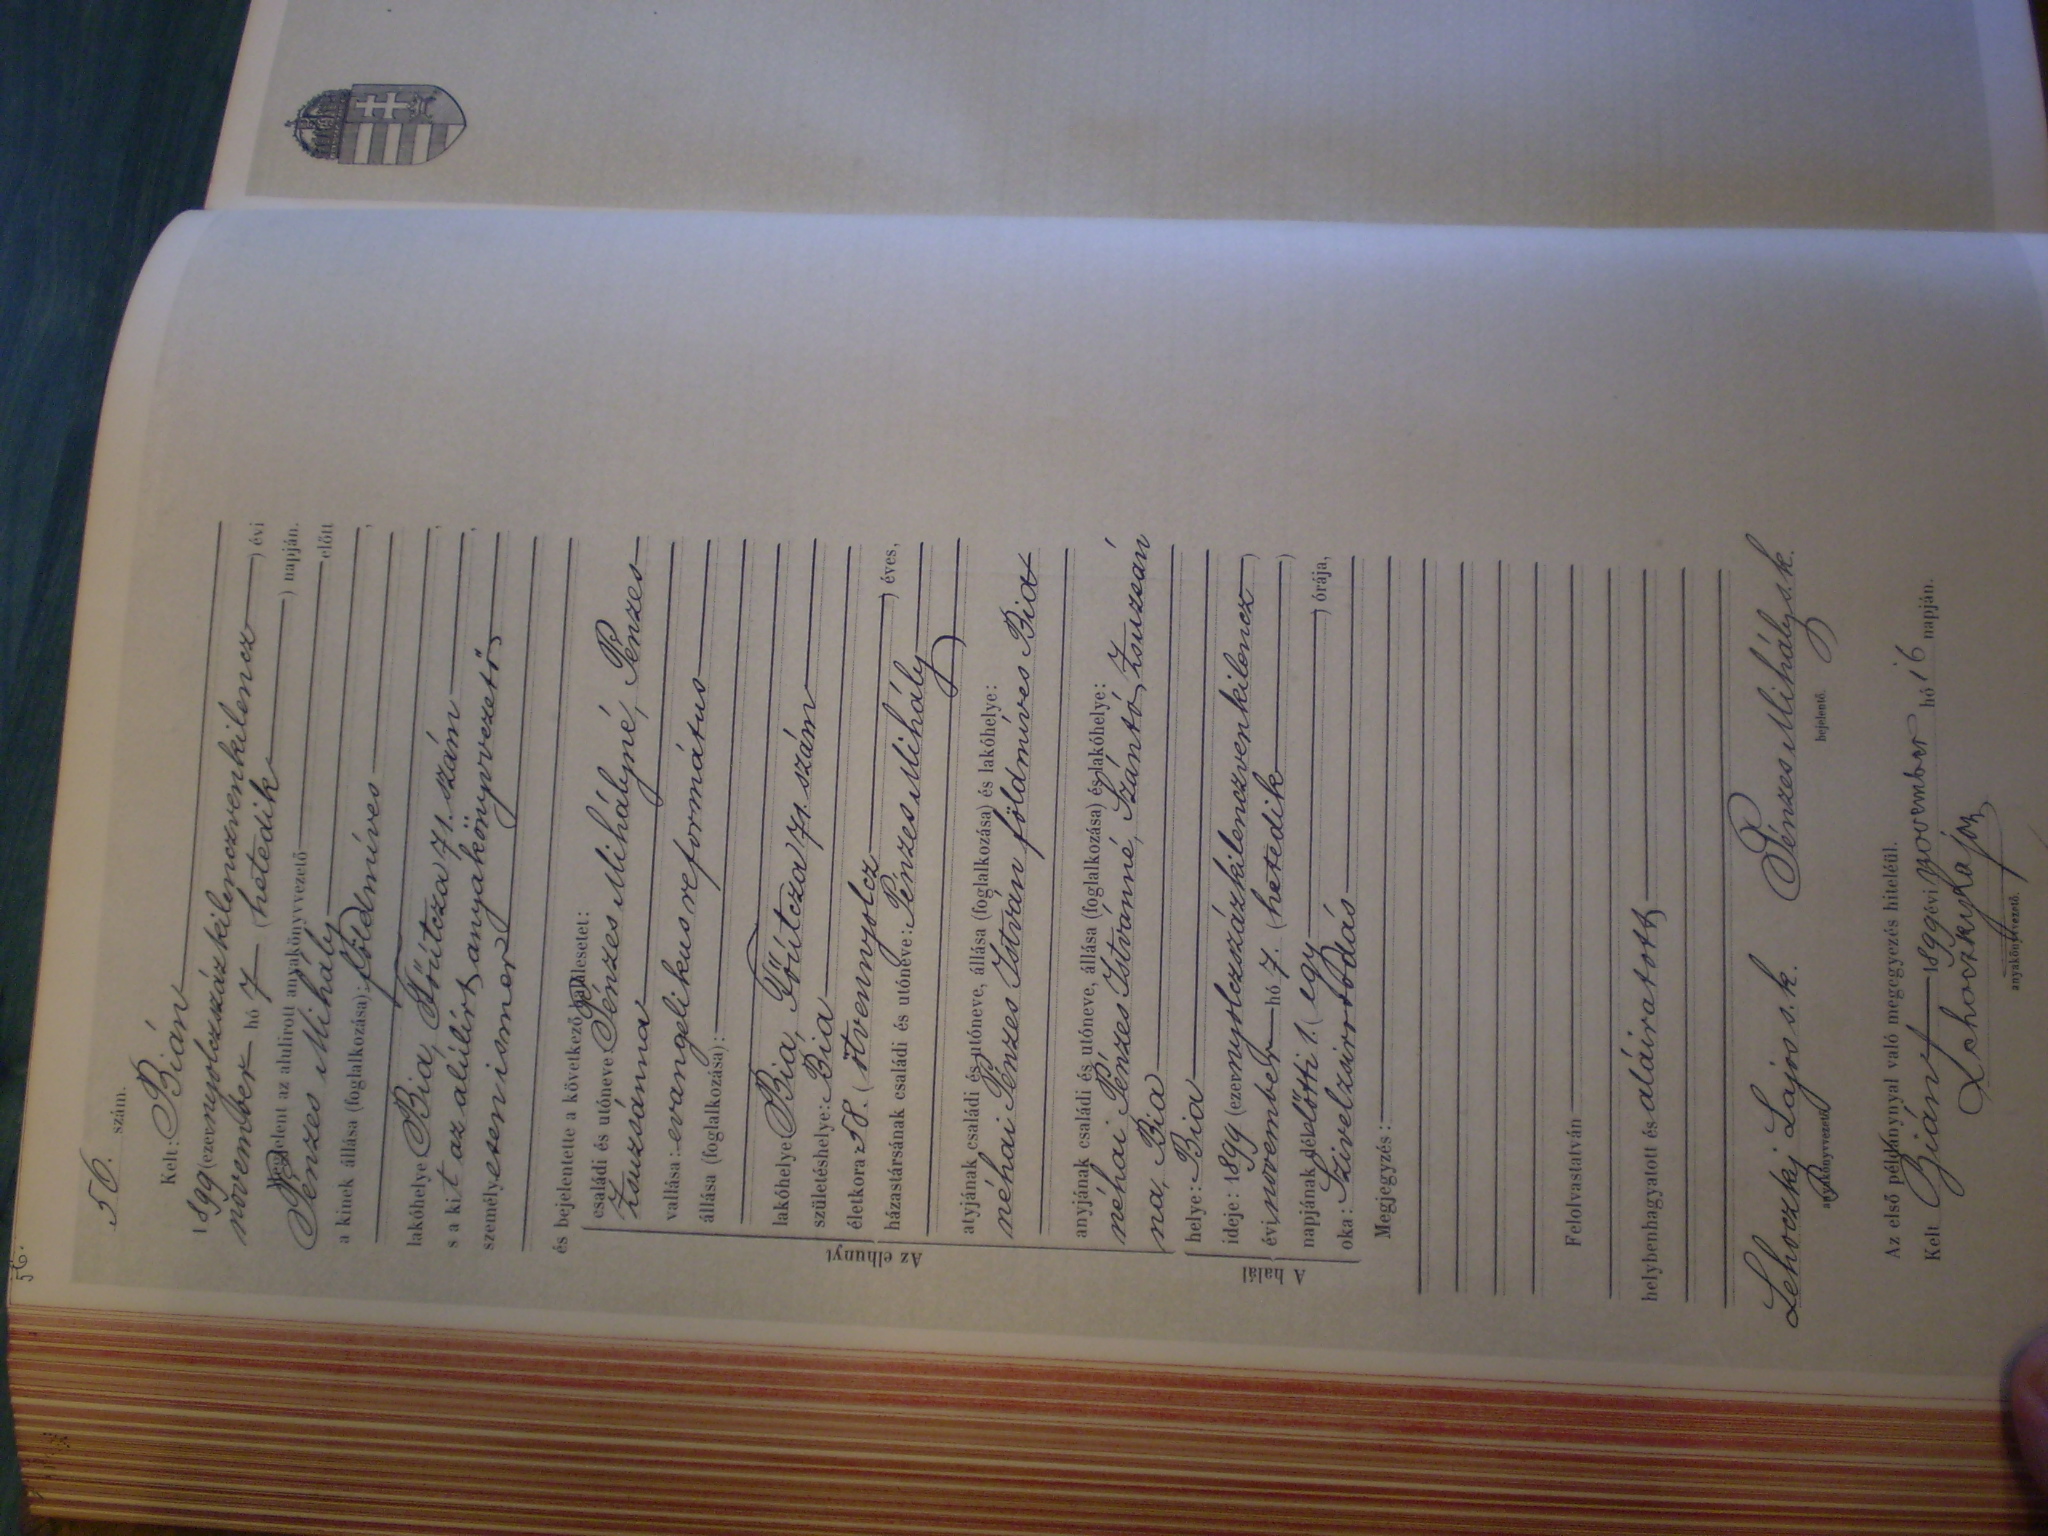 56.
56. szám.
Kelt: Bián
1899 (ezernyolczszázkilenczvenkilencz) évi
november hó 7 (hetedik) napján.
Megjelent az alulirott anyakönyvvezető előtt
Pénzes Mihály
a kinek állása (foglalkozása): földmíves,
lakóhelye Bia, Főútcza 71. szám,
s a kit az alúlírt anyakönyvvezető,
személyesen ismer
és bejelentette a következő halálesetet:
Az elhunyt
családi és utóneve: Pénzes Mihályné, Pénzes
Zsuzsánna
vallása: evangelikus református
állása (foglalkozása):
lakóhelye Bia, Főútcza 71. szám
születéshelye: Bia
életkora: 58. (ötvennyolcz) éves,
házastársának családi és utóneve: Pénzes Mihály
atyjának családi és utóneve, állása (foglalkozása) és lakóhelye:
néhai Pénzes István földmíves Bia
anyjának családi és utóneve, állása (foglalkozása) és lakóhelye:
néhai Pénzes Istvánné, Szántó Zsuzsán
na, Bia
A halál
helye: Bia
ideje: 1899 (ezernyolczszázkilenczvenkilencz)
évi november hó 7. (hetedik)
napjának délelőtti 1. (egy) órája,
oka: Szivelzsirosodás
Megjegyzés:
Felolvastatván
helybenhagyatott és aláiratott
Lehoczky Lajos s.k. Pénzes Mihály s.k.
anyakönyvvezető. bejelentő.
Az első példánynyal való megegyezés hiteléül.
Kelt Bián 1899 évi november hó 16 napján.
Lehoczky Lajos
anyakönyvvezető.